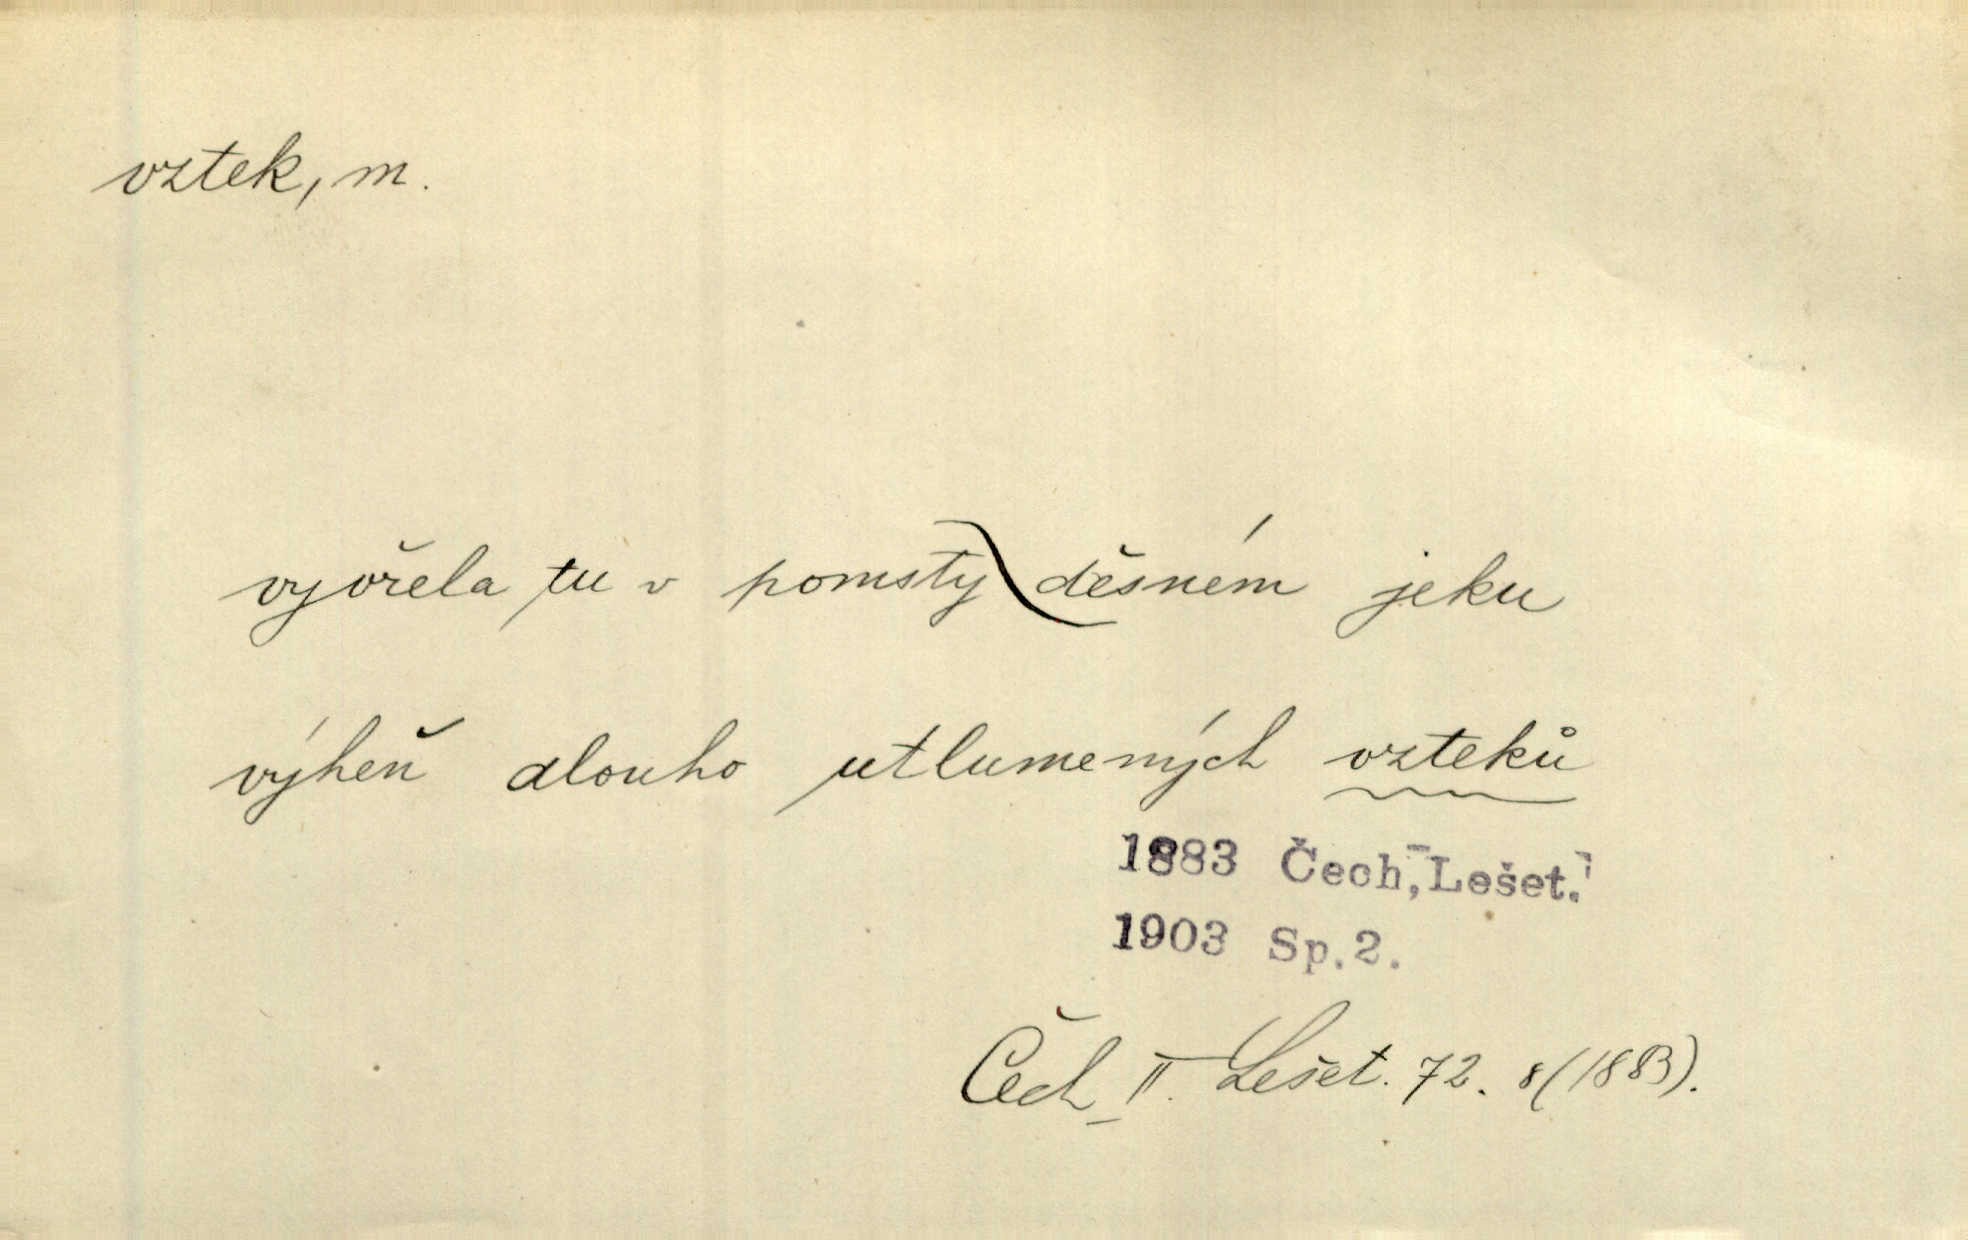 vztek, m.
vyvřela tu v pomsty děsném jeku
výheň dlouho utlumených vzteků
1883 Čech, Lešet.
1903 Sp.2.
Čech II. Lešet. 72. 8 (1883).